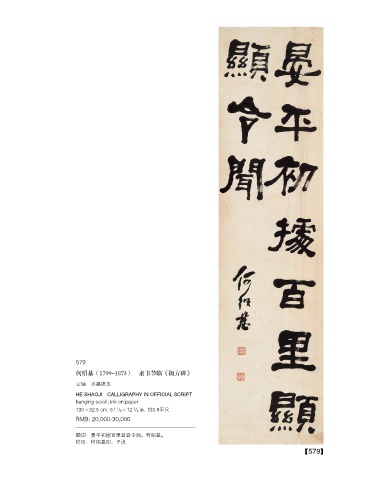 晏平初據百里顯
顯令聞
何紹基
579
何绍基(1799~1873) 隶书节临《衡方碑》
立轴 水墨纸本
HE SHAOJI CALLIGRAPHY IN OFFICIAL SCRIPT
hanging scroll; ink on paper
130×32.5 cm. 51 1/8×12 3/4 in. 约3.8平尺
RMB: 20,000-30,000
款识:晏平初据百里显显令闻。何绍基。
钤印:何绍基印、子贞
【579】